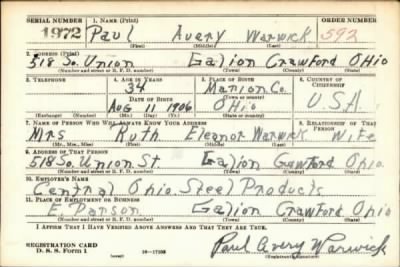 SERIAL NUMBER 1. NAME (Print) ORDER NUMBER
1972 Paul Avery Warwick 592
(First) (Middle) (Last)
2. ADDRESS (Print)
518 So. Union Galion Crawford Ohio
(Number and street or R. F. D. number) (Town) (County) (State)
3. TELEPHONE 4. AGE IN YEARS 5. PLACE OF BIRTH 6. COUNTRY OF CITIZENSHIP
34 Marion Co.
DATE OF BIRTH (Town or county)
Aug 11 1906 Ohio U.S.A
(Exchange) (Number) (Mo.) (Day) (Yr.) (State or country)
7. NAME OF PERSON WHO WILL ALWAYS KNOW YOUR ADDRESS 8. RELATIONSHIP OF THAT PERSON
Mrs Ruth Eleanor Warwick Wife
(Mr., Mrs., Miss) (First) (Middle) (Last)
9. ADDRESS OF THAT PERSON
518 So. Union St Galion Crawford Ohio
(Number and street or R. F. D. number) (Town) (County) (State)
10. EMPLOYER'S NAME
Central Ohio Steel Products
11. PLACE OF EMPLOYMENT OR BUSINESS
E. Parson Galion Crawford Ohio
(Number and street or R. F. D. number) (Town) (County) (State)
I AFFIRM THAT I HAVE VERIFIED ABOVE ANSWERS AND THAT THEY ARE TRUE.
REGISTRATION CARD
D. S. S. Form 1 Paul Avery Warwick
(Registrant's signature)